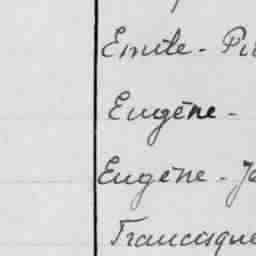 Emile - Pi
Eugène -
Eugène - Jo
Francisque